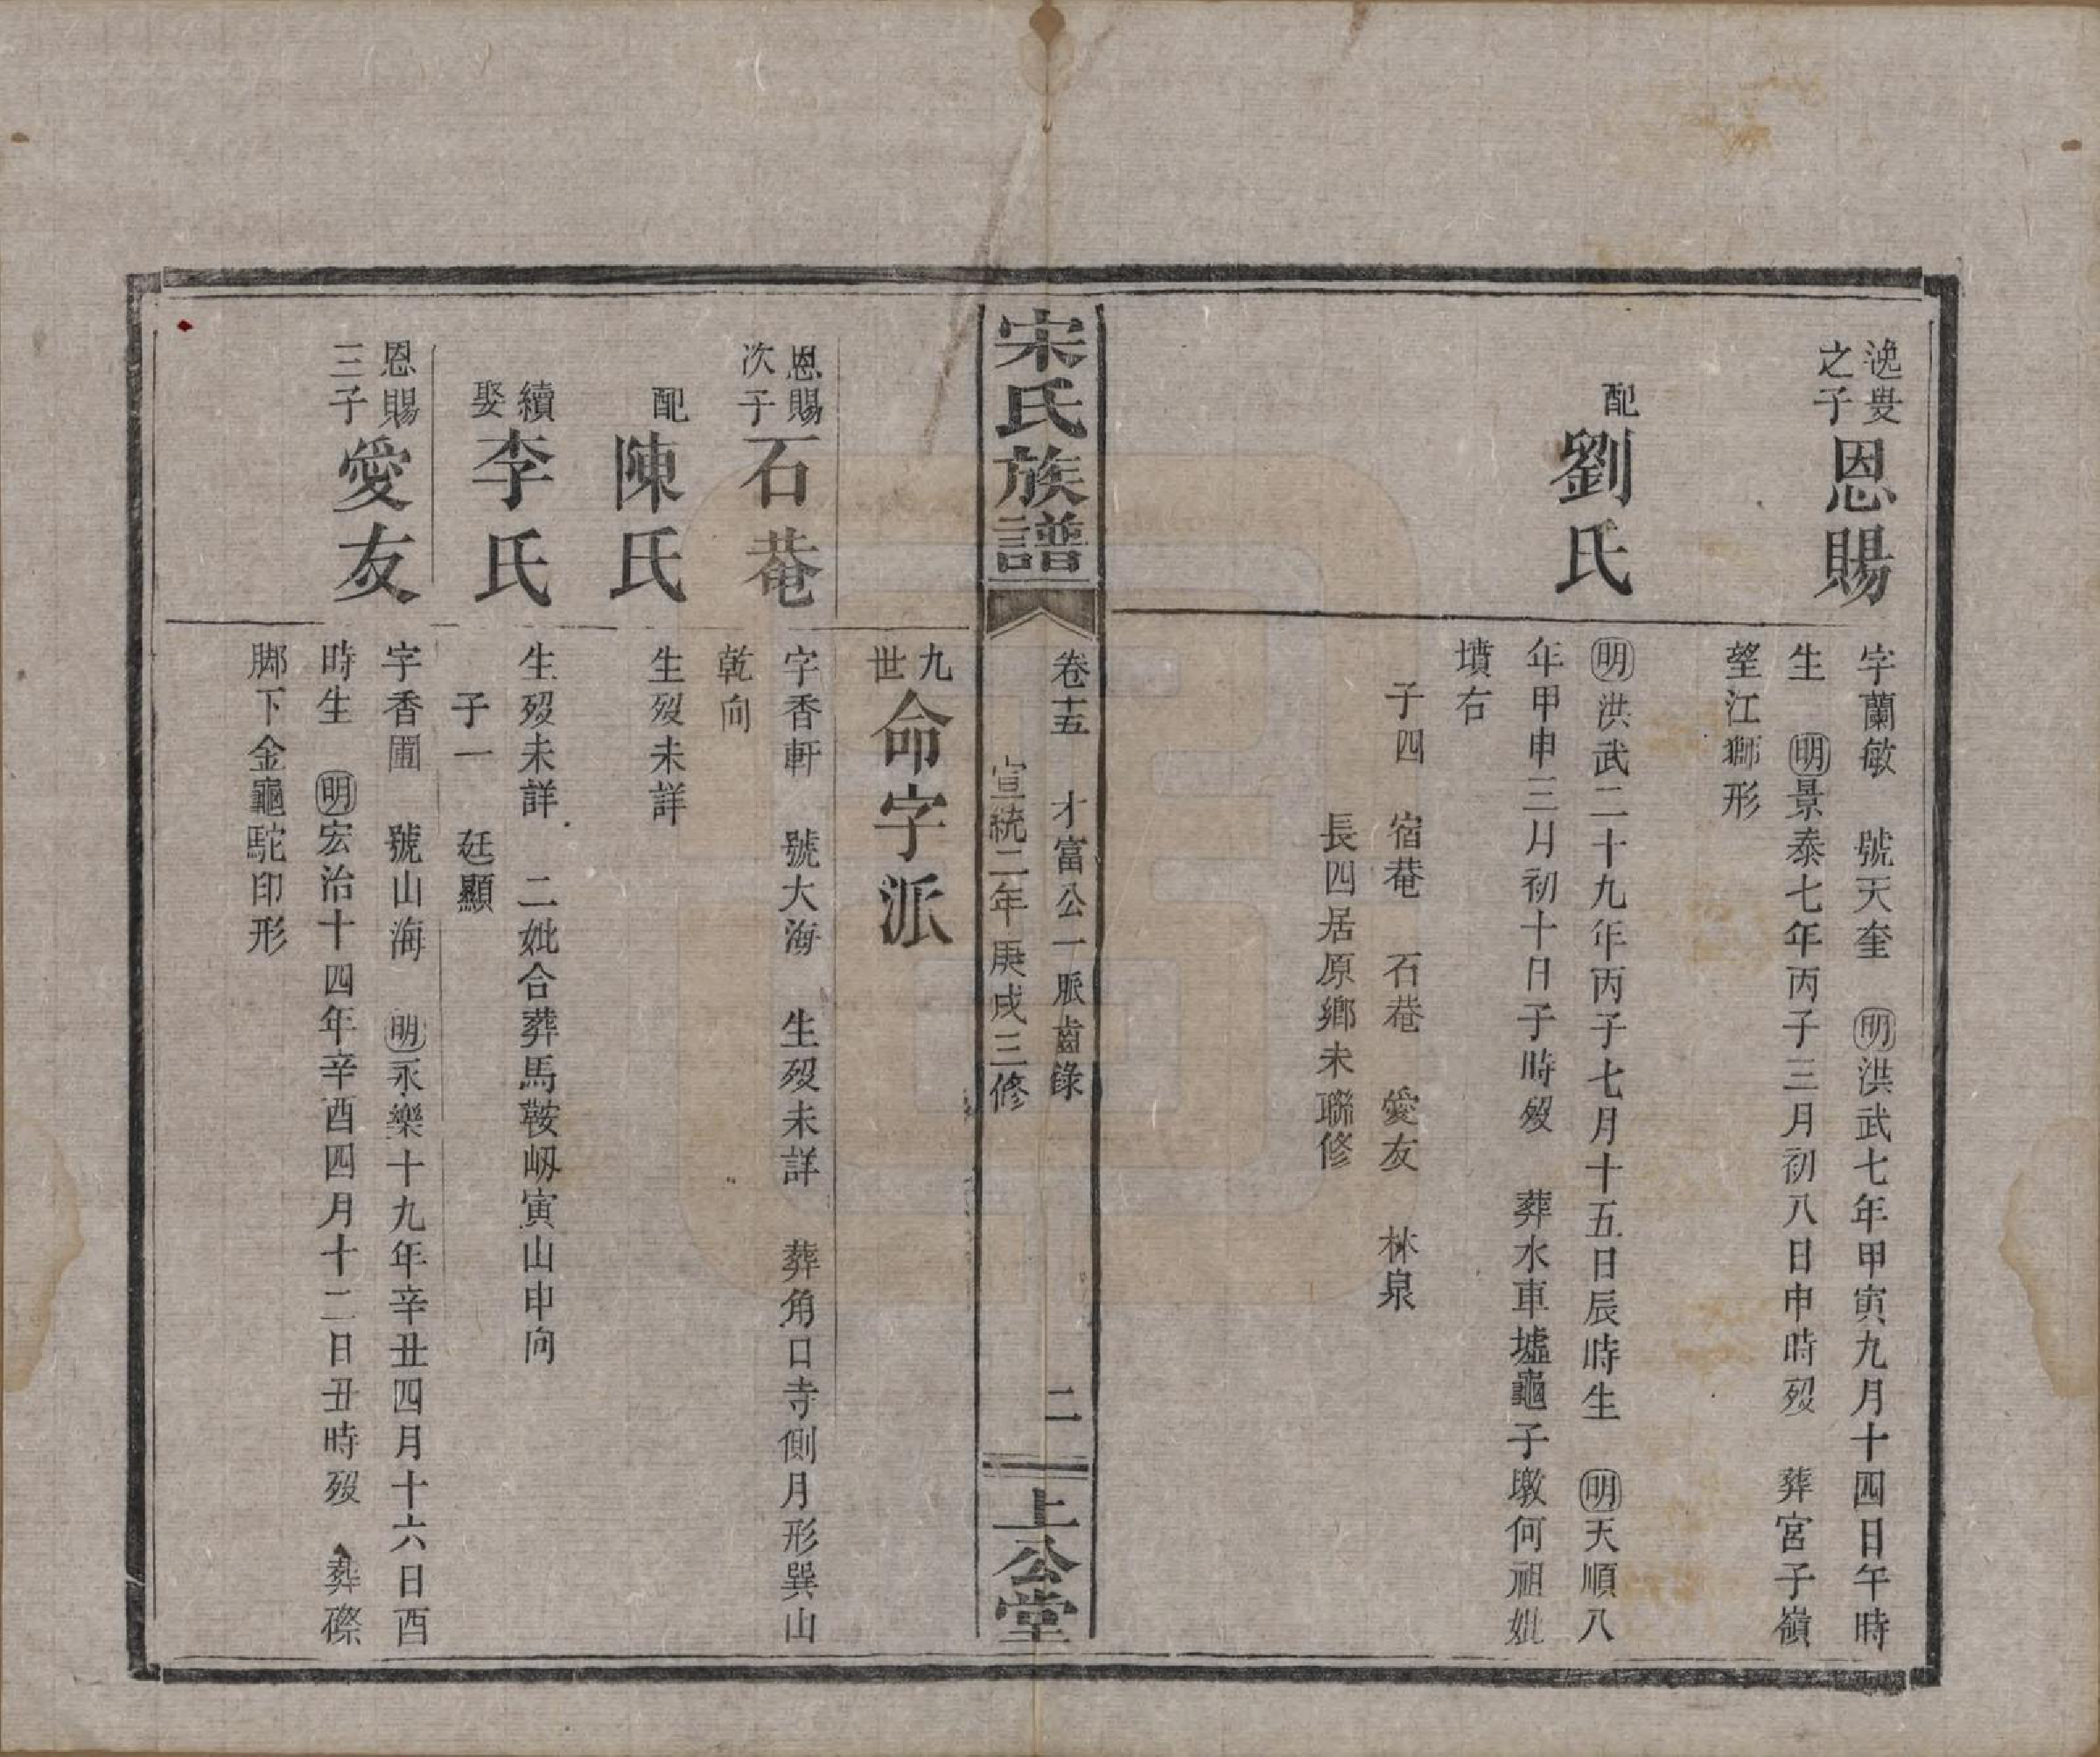 逸叟
之子
恩賜
字蘭敏　號天奎　明洪武七年甲寅九月十四日午時
生　明景泰七年丙子三月初八日申時歿　葬宮子嶺
望江獅形
配
劉氏
明洪武二十九年丙子七月十五日辰時生　明天順八
年甲申三月初十日子時歿　葬水車墟龜子墩何祖妣
墳右
子四　宿菴　石菴　愛友　林泉
長四居原鄉未聯修
宋氏族譜
卷十五　才富公一脈齒錄
宣統二年庚戌三修
二
上公堂
九世
命字派
恩賜
次子
石菴
字香軒　號大海　生歿未詳　葬角口寺側月形巽山
乾向
配
陳氏
生歿未詳
續
娶
李氏
生歿未詳　二妣合葬馬鞍㘭寅山申向
子一　廷顯
恩賜
三子
愛友
字香圃　號山海　明永樂十九年辛丑四月十六日酉
時生　明宏治十四年辛酉四月十二日丑時歿　葬磜
腳下金龜駝印形